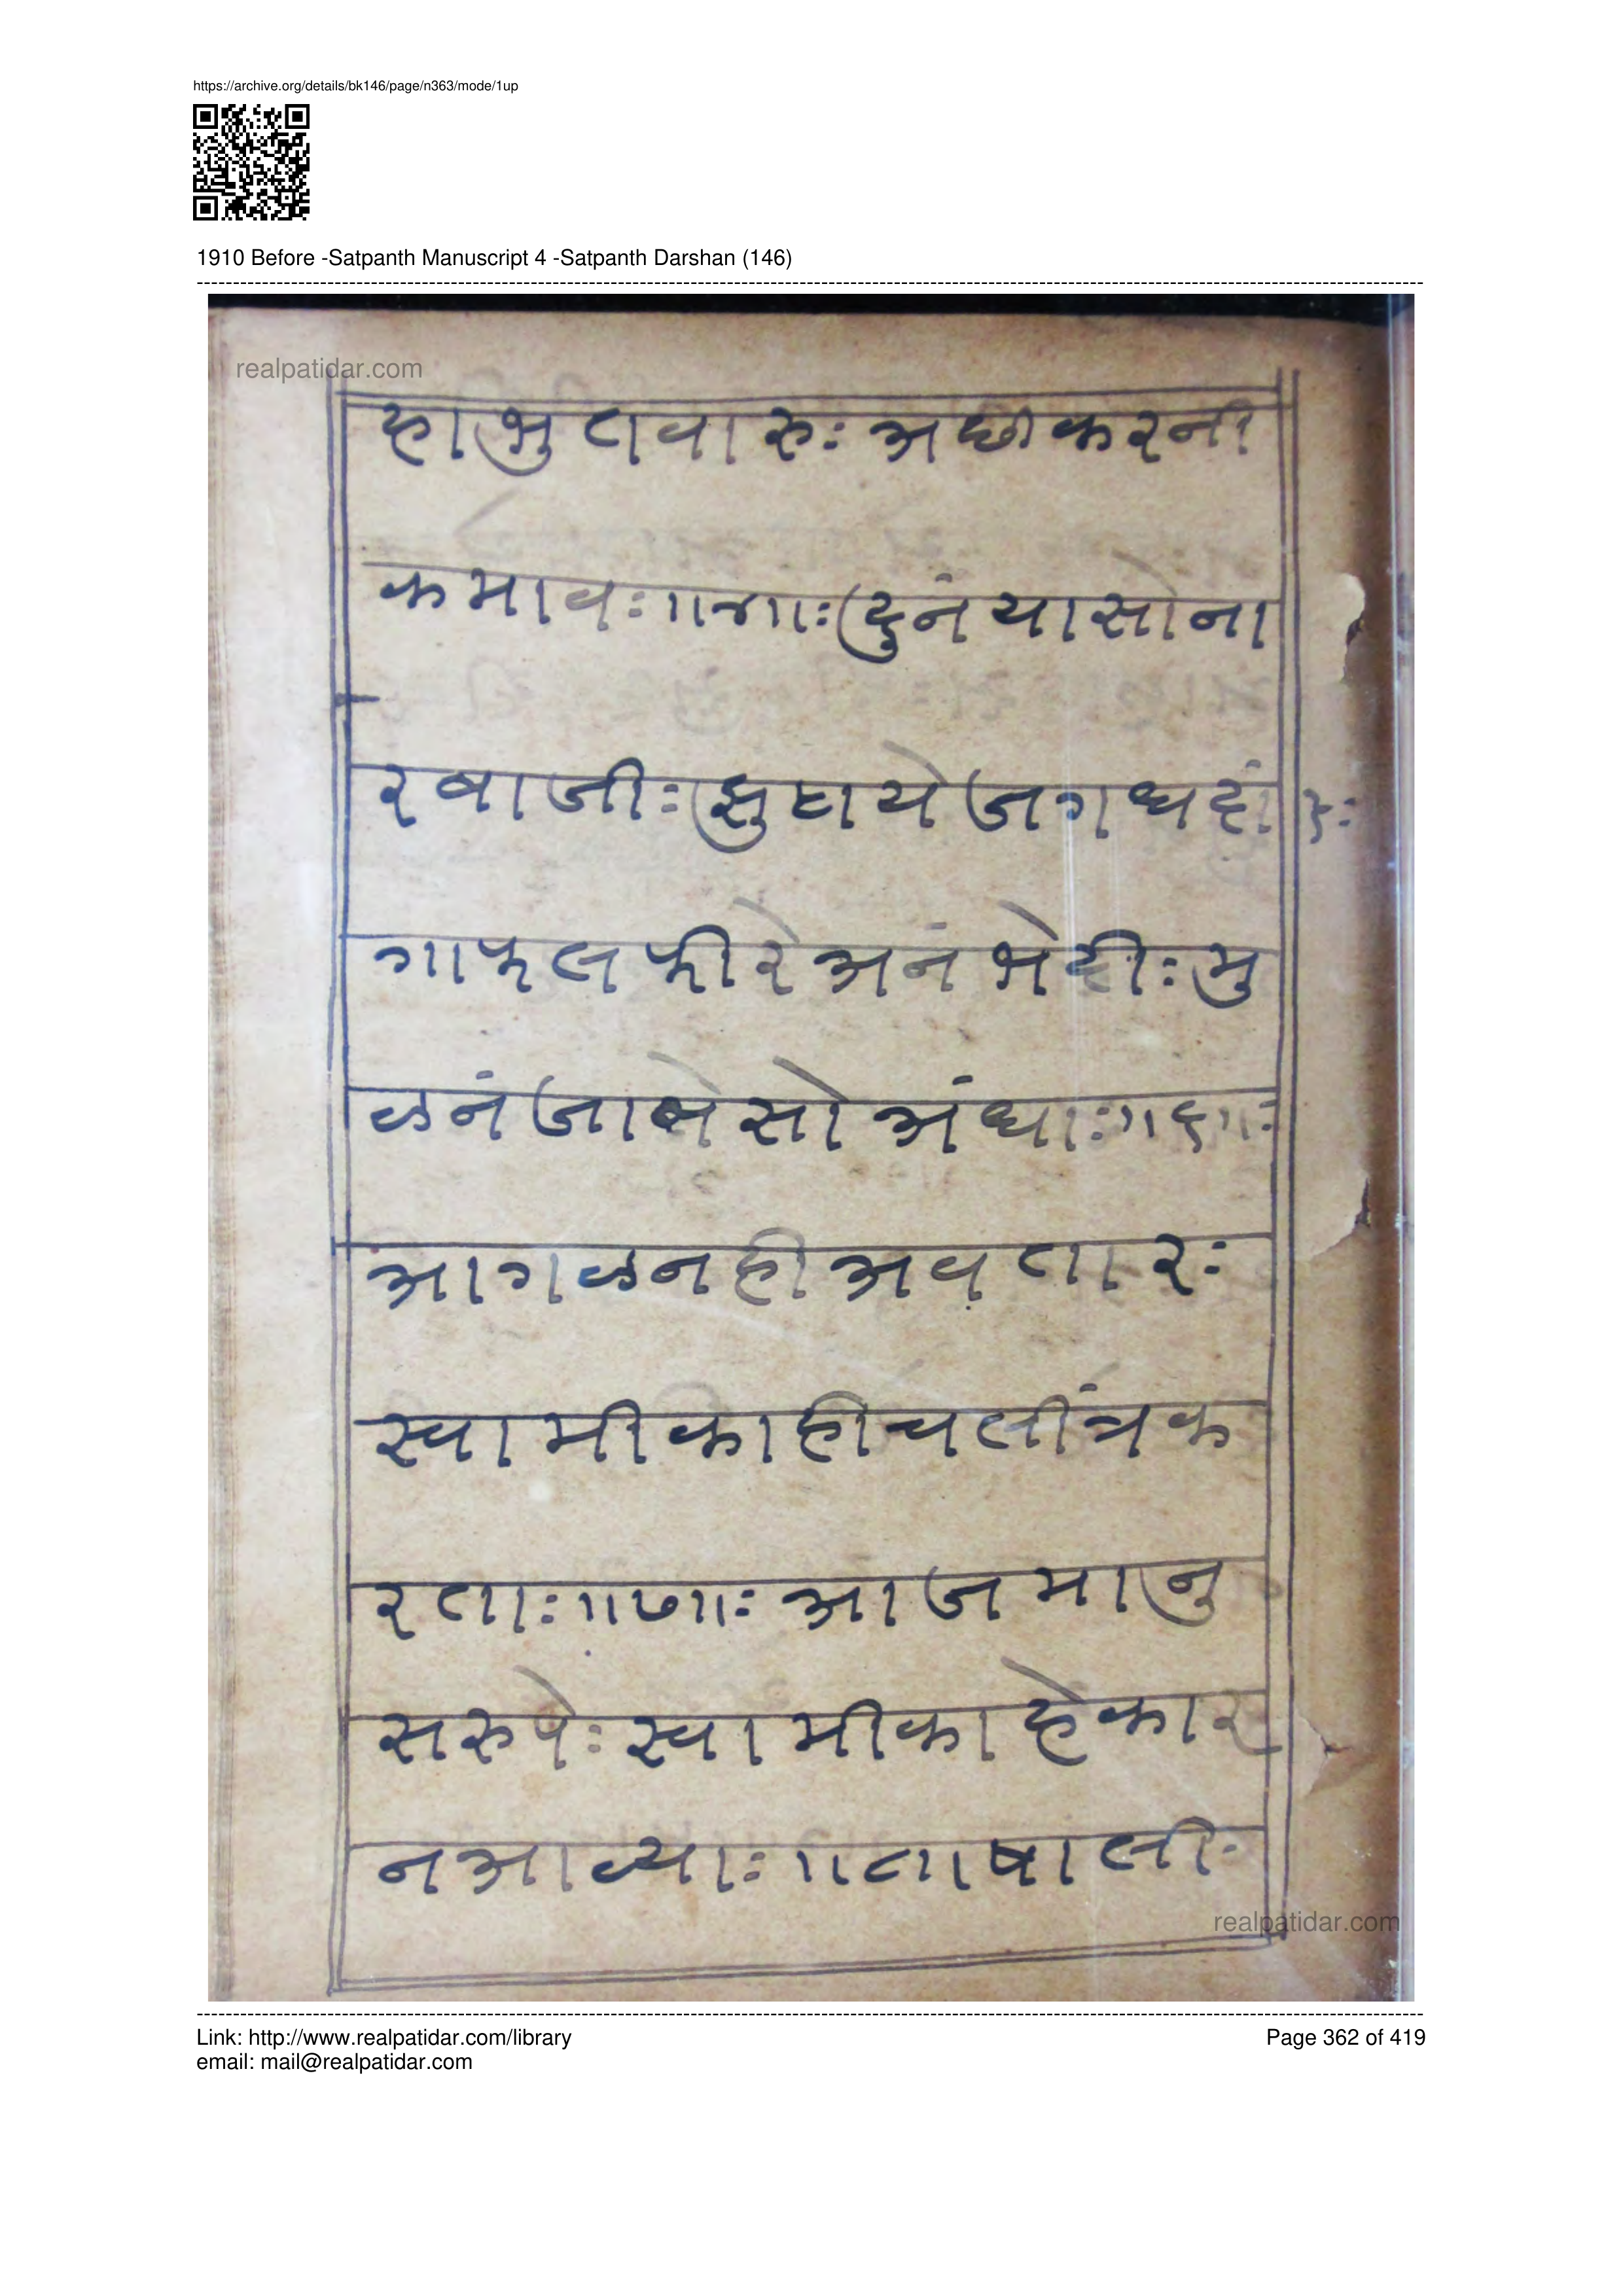 https://archive.org/details/bk146/page/n363/mode/1up
1910 Before -Satpanth Manuscript 4 -Satpanth Darshan (146)
realpatidar.com
हाभुतवारुः अछीकरनी
कमावः॥४॥ः दुनंयासोना
रबाजीः झुठायेजगधदां
गाफलफीरेअनंभेदीः मु
ळनंजाणेसोअंधाः॥६॥ः
आगळनहीअवतारः
स्वामीकाहीचलींत्रक
रताः॥७॥ः आजमानु
सरुपेः स्वामीकाहेकार
नआव्याः॥ताषालीः
realpatidar.com
Link: http://www.realpatidar.com/library
Page 362 of 419
email: mail@realpatidar.com